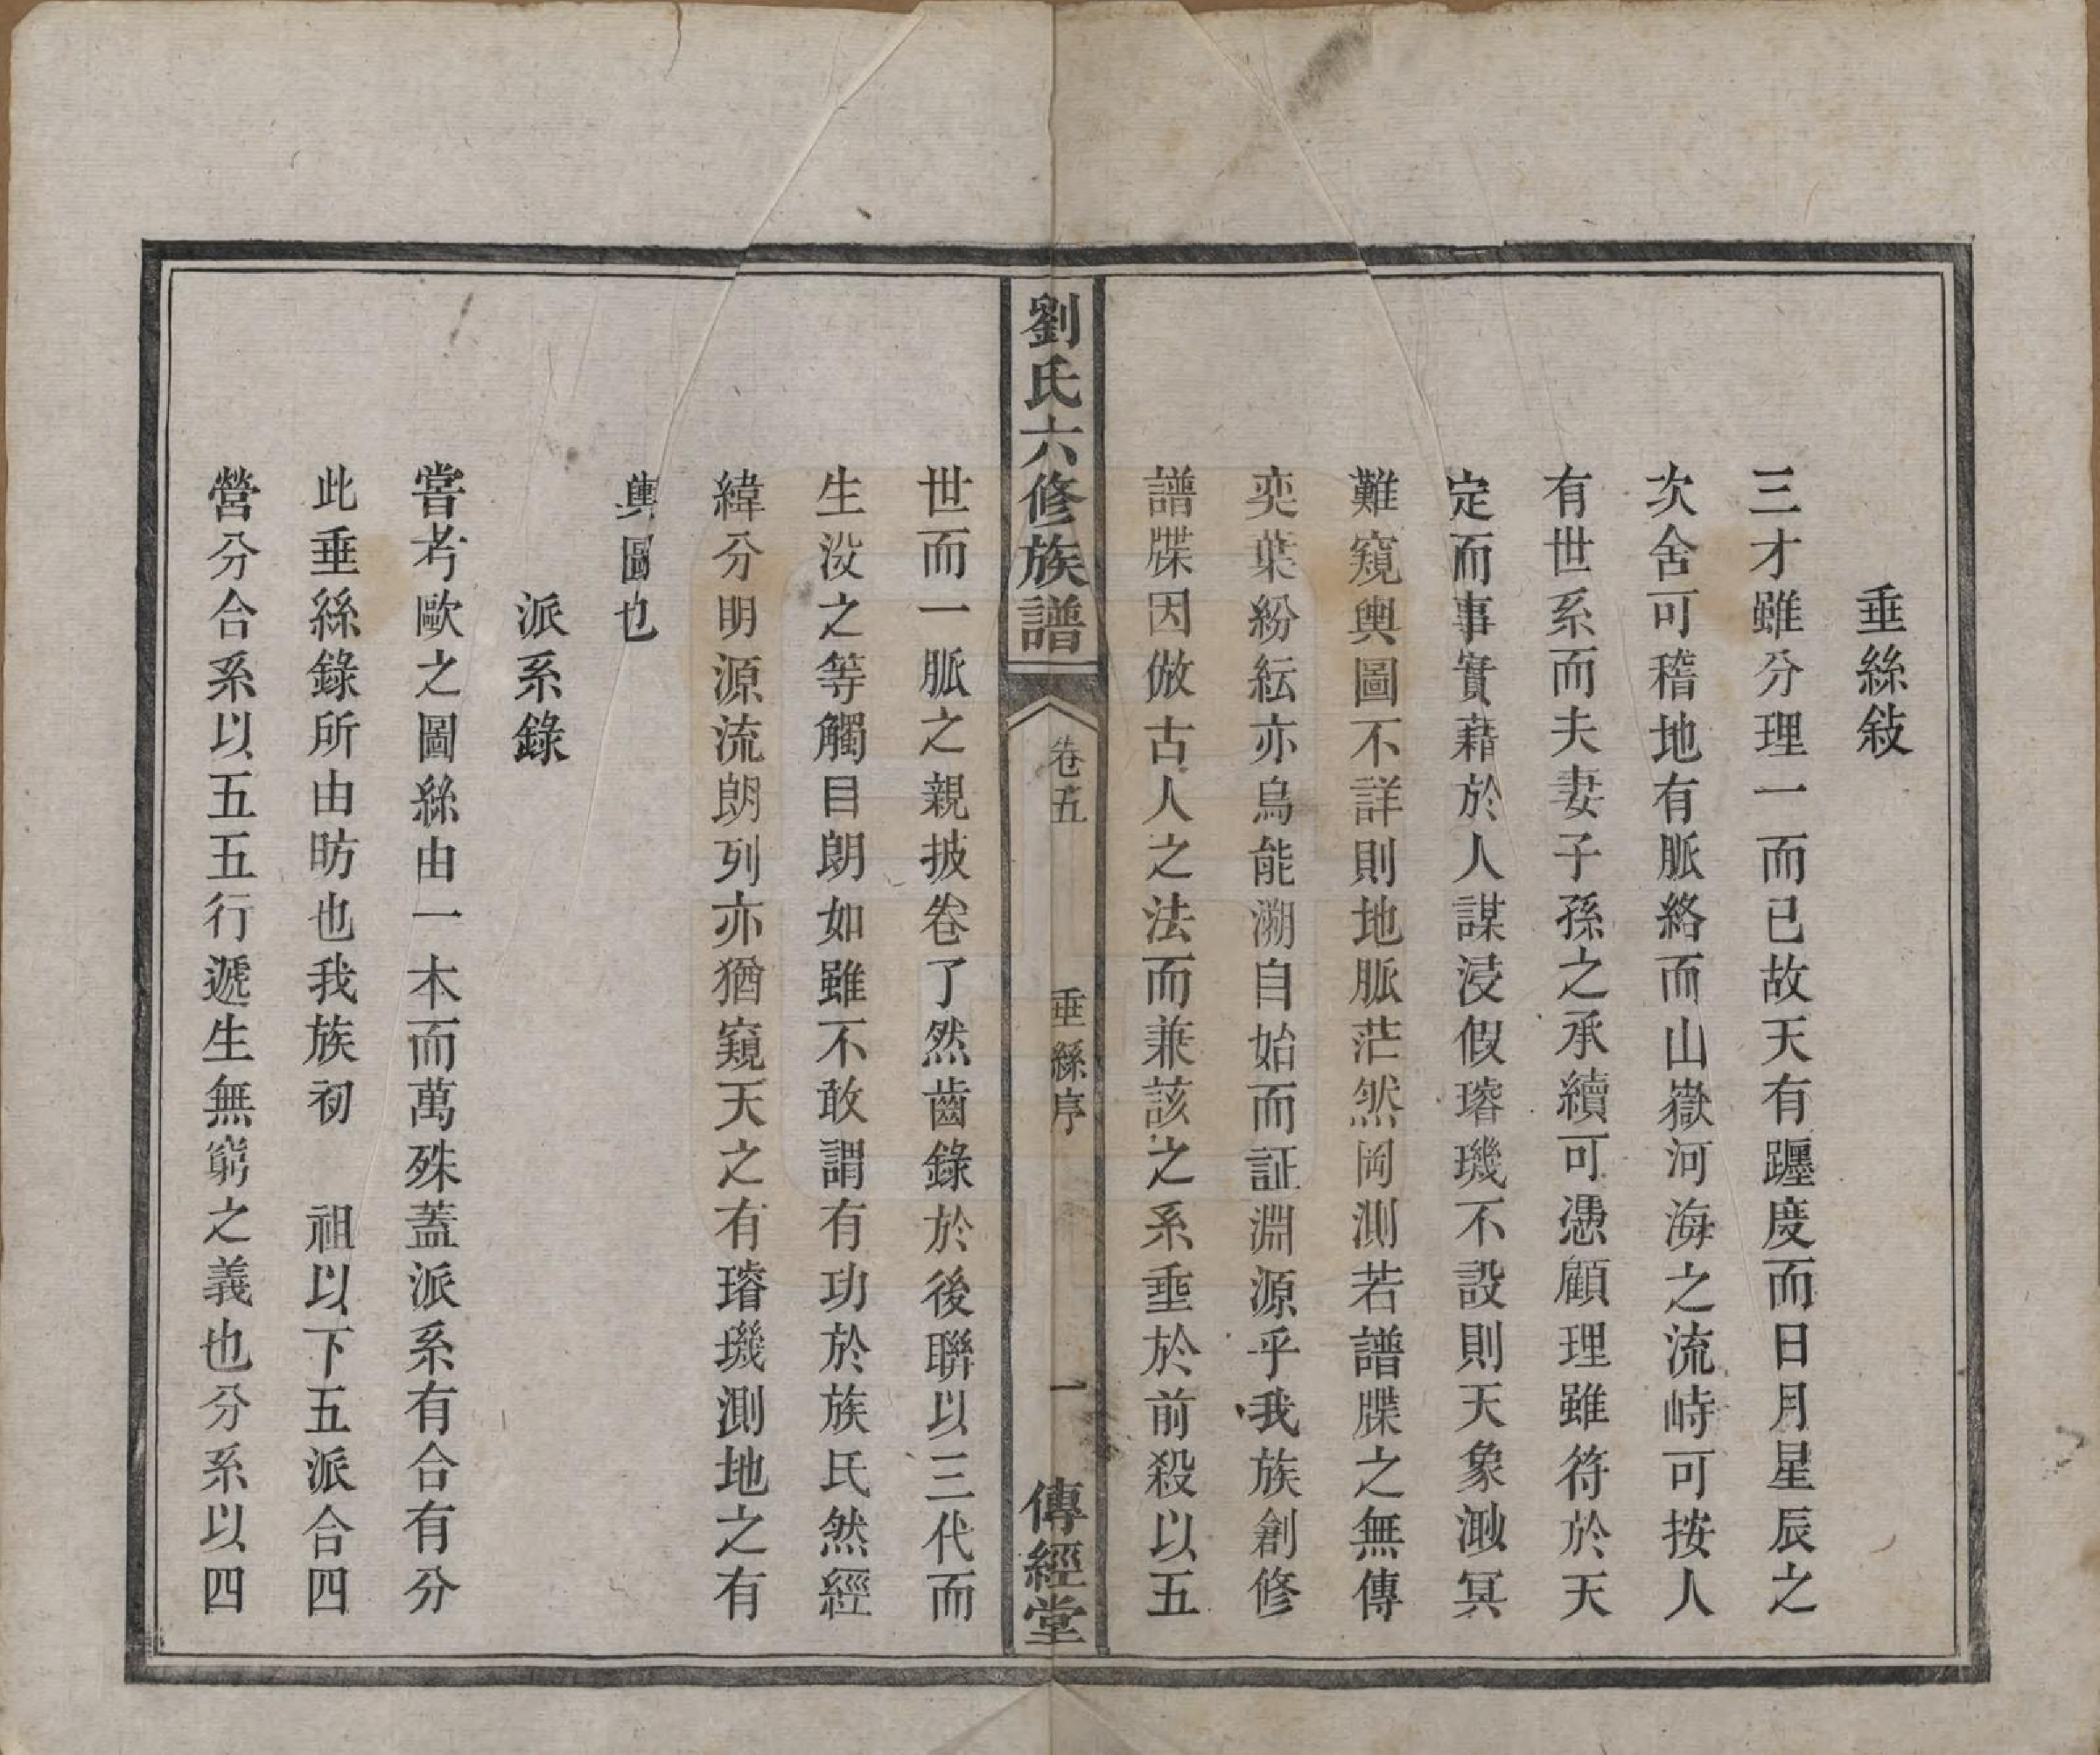 垂絲敍
三才雖分理一而已故天有躔度而日月星辰之
次舍可稽地有脈絡而山嶽河海之流峙可按人
有世系而夫妻子孫之承續可憑顧理雖符於天
定而事實藉於人謀浸假璿璣不設則天象渺冥
難窺輿圖不詳則地脈茫然罔測若譜牒之無傳
奕葉紛紜亦烏能溯自始而証淵源乎我族創修
譜牒因倣古人之法而兼該之系垂於前殺以五
劉氏六修族譜
卷五
垂絲序
一
傳經堂
世而一脈之親披卷了然齒錄於後聯以三代而
生沒之等觸目朗如雖不敢謂有功於族氏然經
緯分明源流朗列亦猶窺天之有璿璣測地之有
輿圖也
派系錄
嘗考歐之圖絲由一木而萬殊蓋派系有合有分
此垂絲錄所由昉也我族初　祖以下五派合四
營分合系以五五行遞生無窮之義也分系以四